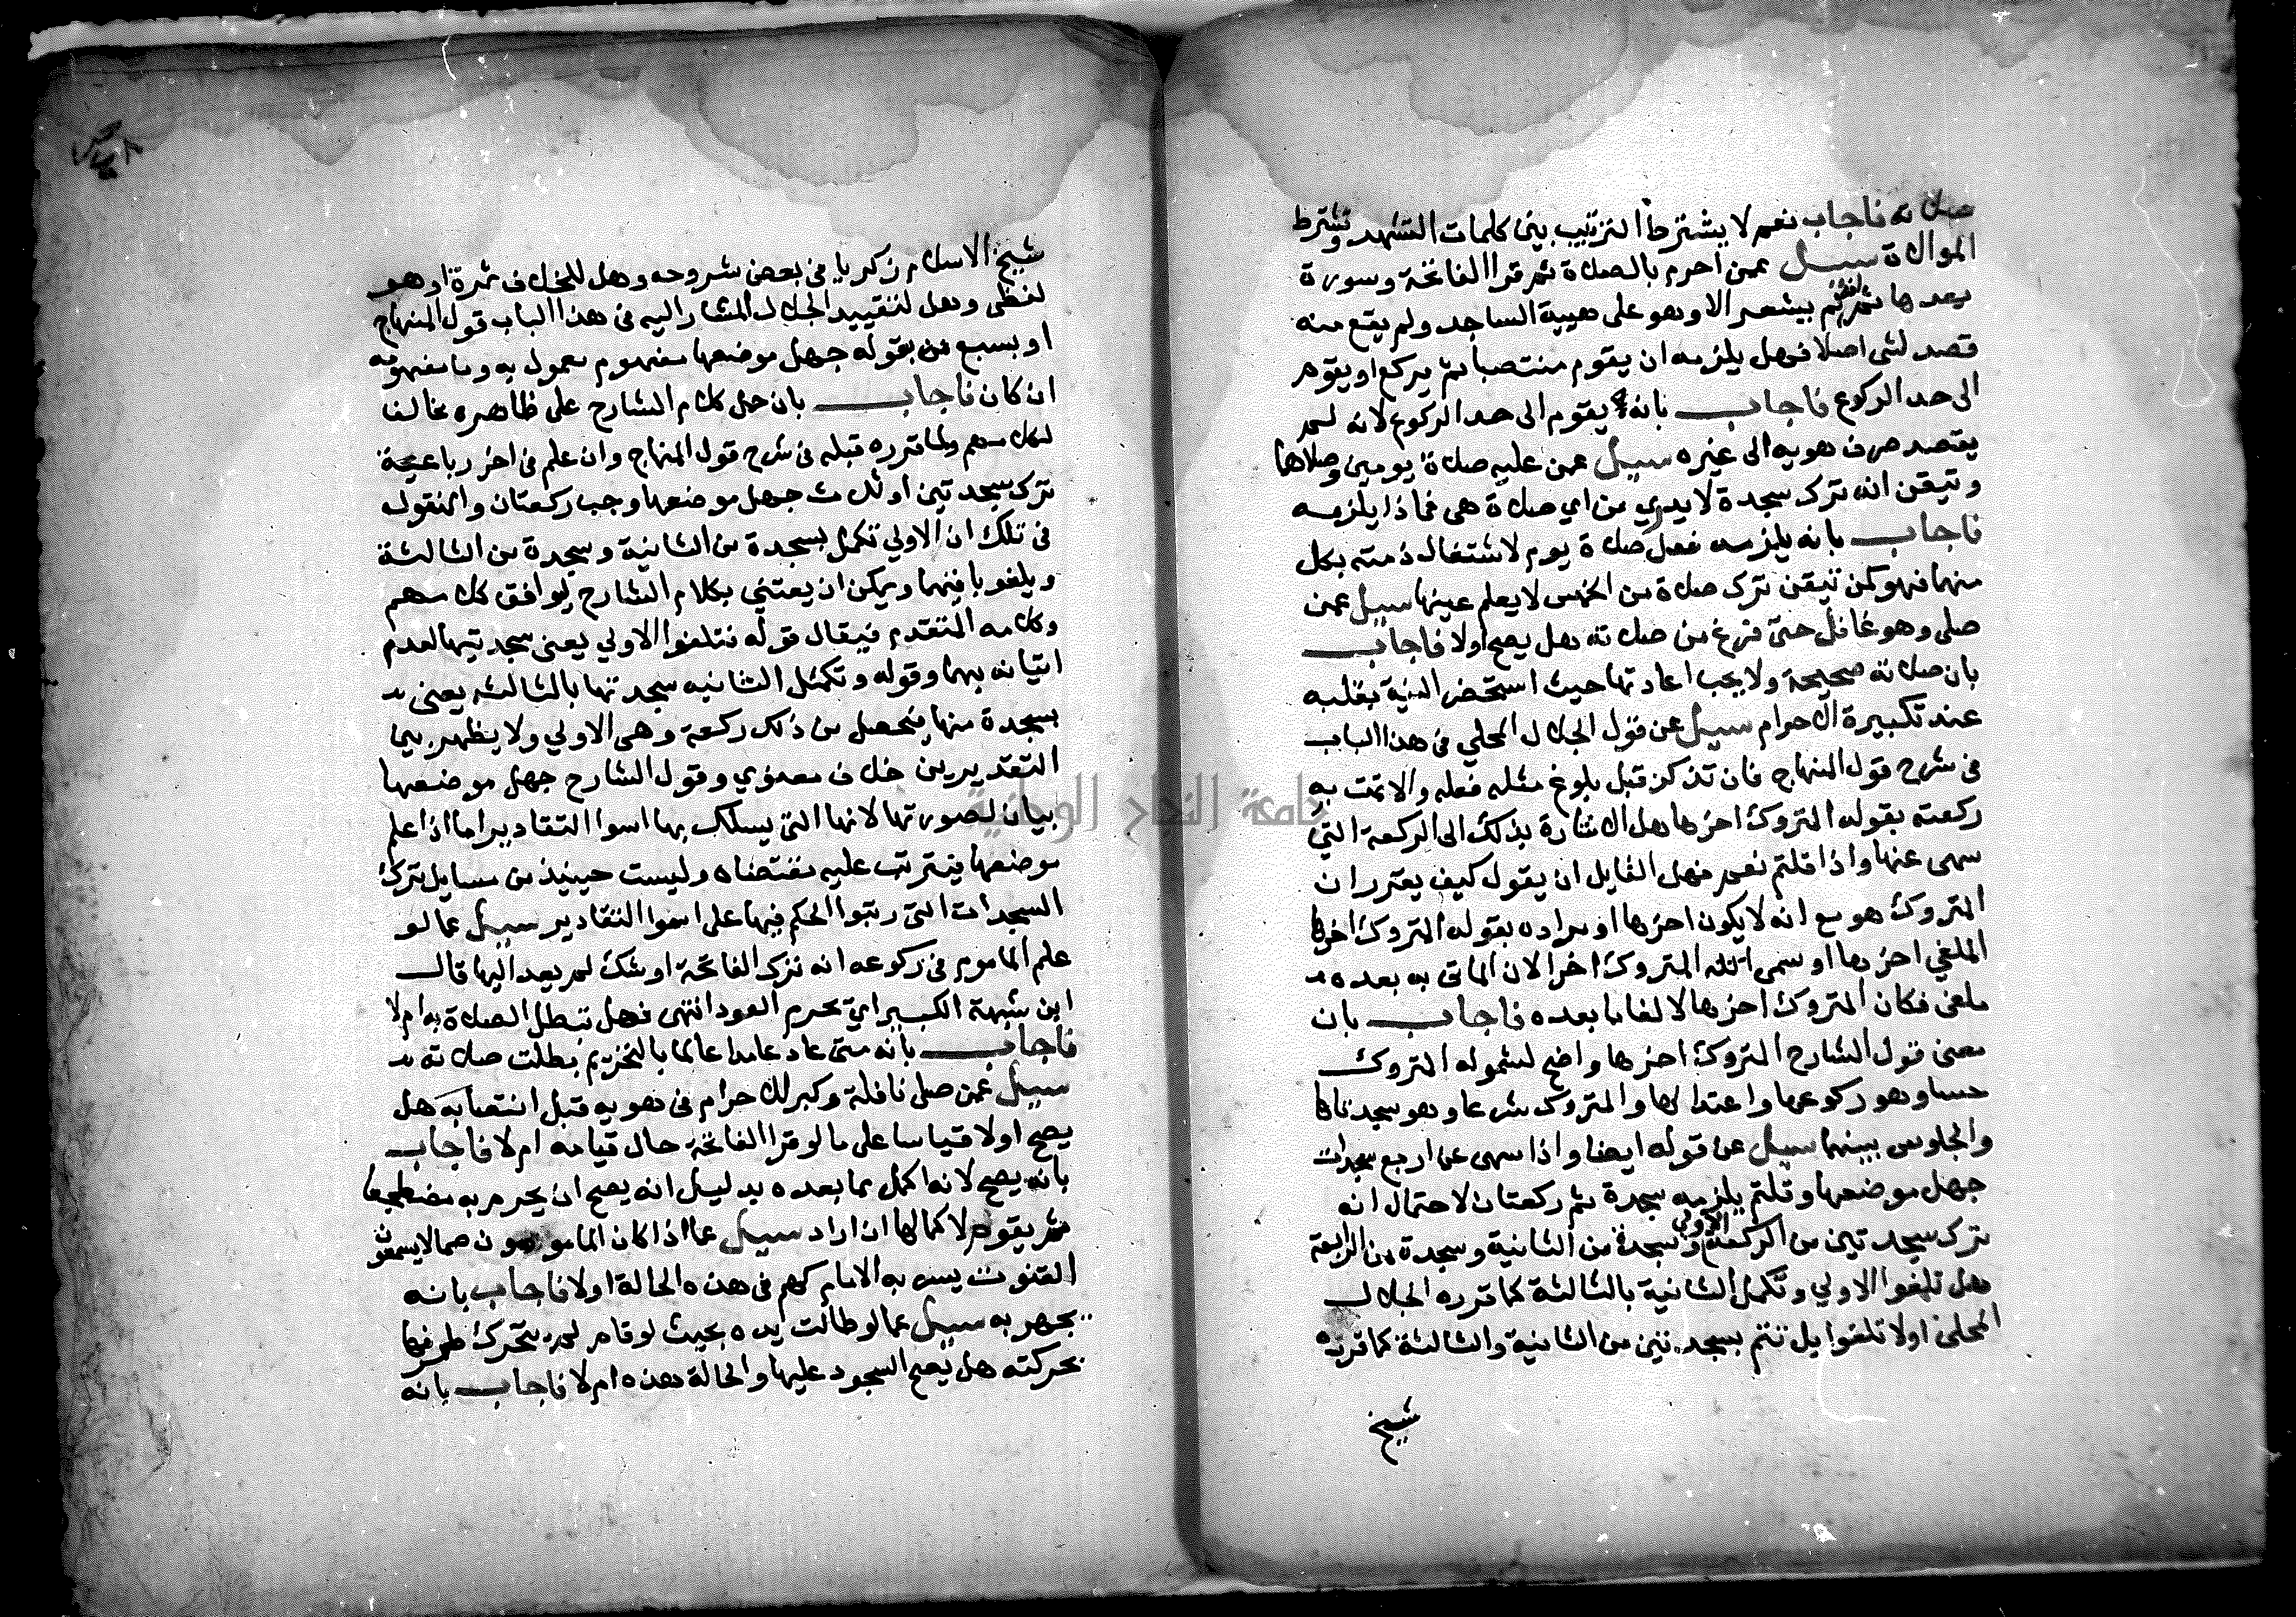 صلاته فاجاب نعم لا يشترط الترتيب بين كلمات التشهد وتشترط
الموالاة سيل عمن احرم بالصلاة ثم قرا الفاتحة وسورة
بعدها ثم لم يشعر الا وهو على هيية الساجد ولم يقع منه
قصد لشى اصلا فهل يلزمه ان يقوم منتصبا ثم يركع او يقوم
الى حد الركوع فاجاب بانه يقوم الى حد الركوع لانه لم
يقصد صرف هويه الى غيره سيل عمن عليه صلاة يومين وصلاها
وتيقن انه ترك سجدة لا يدري من اي صلاة هى فماذا يلزمه
فاجاب بانه يلزمه فعل صلاة يوم لاشتغال ذمته بكل
منها فهو كمن تيقن ترك صلاة من الخمس لا يعلم عينها سيل عمن
صلى وهو غافل حتى فرغ من صلاته هل يصح اولا فاجاب
بان صلاته صحيحة ولا يجب اعادتها حيث استحضر النية بقلبه
عند تكبيرة الاحرام سيل عن قول الجلال المحلي فى هذا الباب
فى شرح قول المنهاج فان تذكر قبل بلوغ مثله فعله والا تمت به
ركعته بقوله المتروك اخرها هل الاشارة بذلك الى الركعة التي
سهى عنها واذا قلتم نعم فهل القايل ان يقول كيف يعتر ان
المتروك هو مع انه لا يكون اخرها او مراده بقوله المتروك اخرها
الملغي اخرها او سمى المتروك اخرا لان الماتى به بعده
ملغى فكان المتروك اخرها لالغا ما بعده فاجاب بان
معنى قول الشارح المتروك اخرها واضح لشموله المتروك
حسا وهو ركوعها واعتدالها والمتروك شرعا وهو سجدتاها
والجلوس بينهما سيل عن قوله ايضا واذا سهى عن اربع سجدات
جهل موضعها وقلتم يلزمه سجدة ثم ركعتان لاحتمال انه
ترك سجدتين من الركعة الاولى وسجدة من الثانية وسجدة من الرابعة
هل تلغوا الاولي وتكمل الثانية بالثالثة كما قرره الجلال
المحلى اولا تلغوا بل تتم بسجدتين من الثانية والثالثة كما قرره
شيخ
شيخ الاسلام زكريا فى بعض شروحه وهل للخلاف ثمرة او هو
لفظى وهل لتقييد الجلال المشار اليه فى هذا الباب قول المنهاج
او بسبع من بقوله جهل موضعها مفهوم معمول به وما مفهومه
ان كان فاجاب بان حمل كلام الشارح على ظاهره مخالف
لكلامهم ولما قرره قبله فى شرح قول المنهاج وان علم فى اخر رباعية
ترك سجدتين او ثلاث جهل موضعها وجب ركعتان والمنقول
فى تلك ان الاولي تكمل بسجدة من الثانية وسجدة من الثالثة
ويلغو باقيهما ويمكن ان يعتني بكلام الشارح ليوافق كلامهم
وكلامه المتقدم فيقال قوله فتلغوا الاولي يعنى سجدتيها لعدم
اتيانه بهما وقوله وتكمل الثانيه سجدتها بالثالثه يعنى
بسجدة منها فيحصل من ذلك ركعة وهى الاولي ولا يظهر بينما
التقديرين خلاف معنوي وقول الشارح جهل موضعها
بيان لصورتها لانها التى يسلك بها اسوا التقادير اما اذا علم
موضعها فيترتب عليه مقتضاه وليست حينيذ من مسايل ترك
السجدات التى رتبوا الحكم فيها على اسوا التقادير سيل عما لو
علم الماموم فى ركوعه انه ترك الفاتحة او شك لم يعد اليها قال
ابن شهبة الكبير اي يحرم العود انتهى فهل تبطل الصلاة به ام لا
فاجاب بانه متى عاد عامدا عالما بالتحريم بطلت صلاته
سيل عمن صلى نافلة وكبر للاحرام فى هويه قبل انتصابه هل
يصح اولا قياسا على ما لو قرا الفاتحة حال قيامه ام لا فاجاب
بانه يصح لانه اكمل مما بعده بدليل انه يصح ان يحرم به مضطجعا
ثم يقوم لاكمالها ان اراد سيل عما اذا كان المامومون صما لا يسمعون
القنوت يسر به الامام كهم فى هذه الحالة اولا فاجاب بانه
يجهر به سيل عما لو طالت يده بحيث لو قام لم يتحرك طرفها
بحركته هل يصح السجود عليها والحالة هذه ام لا فاجاب بانه
جامعة النجاح الوطنية